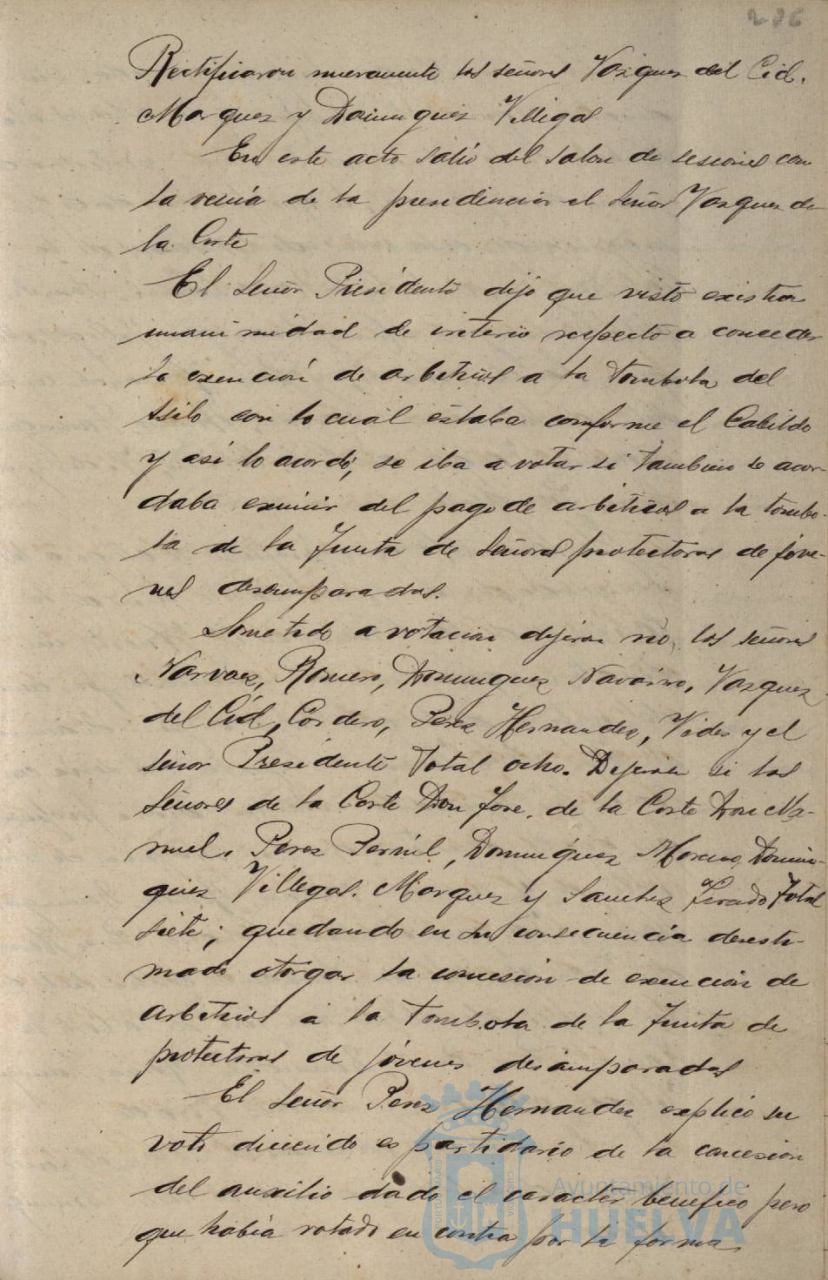 286
Rectificaron nuevamente los señores Vazquez del Cid.
Marquez y Dominguez Villegas
En este acto salió del salon de sesiones con
la venia de la presidencia el Señor Vazquez de
la Corte
El Señor Presidente dijo que visto existia
unanimidad de criterio respecto a conceder
la exención de arbitrios a la tombola del
Asilo con lo cual estaba conforme el Cabildo
y asi lo acordó, se iba a votar si tambien se acor-
daba eximir del pago de arbitrios a la tombo-
la de la Junta de Señoras protectoras de jóve-
nes desamparadas.
Sometido a votacion dijeron no, los señores
Narvaez, Romero, Dominguez Navarro, Vazquez
del Cid, Cordero, Perez Hernandez, Vides y el
señor Presidente Total ocho. Dijeron si los
Señores de la Corte Don Jose, de la Corte Don Ma-
nuel, Perez Pernil, Dominguez Moreno, Domin-
guez Villegas. Marquez y Sanchez Total
siete; quedando en su consecuencia desesti-
mado otorgar la concesión de exención de
arbitrios a la Tombola de la Junta de
protectoras de jóvenes desamparadas
El Señor Perez Hernandez explicó su
voto diciendo es partidario de la concesion
del auxilio dado el caracter benefico pero
que habia votado en contra por la forma
Ayuntamiento de
HUELVA